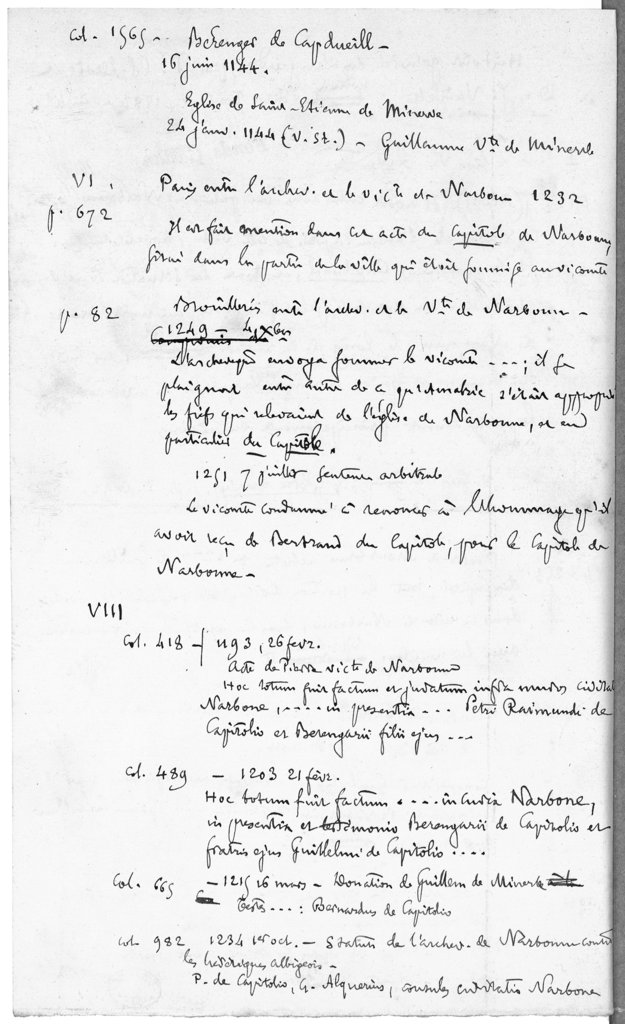 Col. 1565 - Bérenger de Capdueill -
16 juin 1144.
Eglise de Saint-Etienne de Minerve
24 janv. 1144 (v. st.) - Guillaume Vte de Minerve
VI, Paix entre l'archev. et le victe de Narbonne 1232
p. 672
Il est fait mention dans cet acte du Capitole de Narbonne,
situé dans la partie de la ville qui était soumise au vicomte
p. 82 Brouilleries entre l'archev. et le Vte de Narbonne -
1249 -
L'archevêque envoya sommer le vicomte ....; il se
plaignait entre autre de ce qu'Amalric s'était approprié
les fiefs qui relevaient de l'église de Narbonne, et en
particulier du Capitole.
1251 7 juillet Sentence arbitrale
Le vicomte condamné à renoncer à l'hommage qu'il
avoit reçu de Bertrand du Capitole, pour le Capitole de
Narbonne -
VIII
Col. 418 - 1193, 26 fevr.
Acte de Pierre victe de Narbonne
Hoc totum fuit factum et judatum infra muros civitat
Narbone, .... in presentia ... Petri Raimundi de
Capitolio et Berengarii filii ejus ...
Col. 489 - 1203 21 févr.
Hoc totum fuit factum .... in curia Narbone,
in presentia et testimonio Berengarii de Capitolio et
fratris ejus Guillelmi de Capitolio ....
Col. 665 - 1215 16 mars - Donation de Guillem de Minerve
Testes ... : Bernardus de Capitolio
Col. 982 1234 1er oct. - Statuts de l'archev. de Narbonne contre
les hérétiques albigeois -
P. de Capitolio, G. Alquerius, consules civitatis Narbone